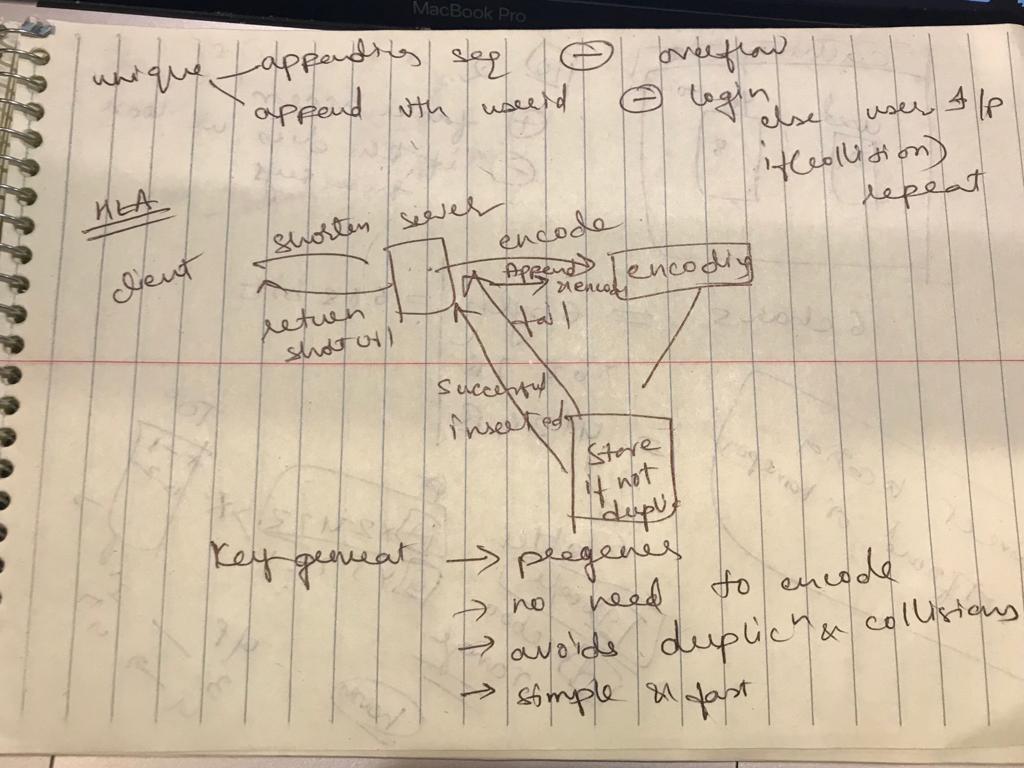 MacBook Pro
unique appending seq ⊖ overflow
append with userid ⊖ login
else user I/p
if(collision)
repeat
HLA
shorten server encode
client Append encoding
return fail
short url
Successful
inserted
Store
if not
dupl
Key generat → pregener
→ no need to encode
→ avoids duplicn & collisions
→ simple & fast